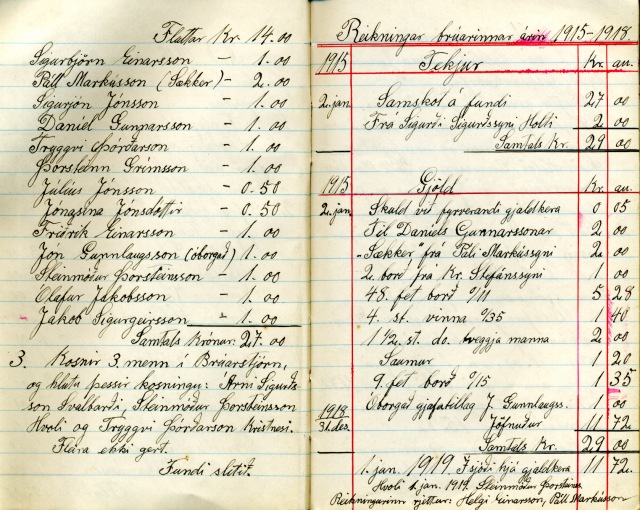 Fluttar Kr. 14.00
Sigurbjörn Einarsson - 1.00
Páll Markússon (Sækker) - 2.00
Sigurjón Jónsson - 1.00
Daníel Gunnarsson - 1.00
Tryggvi Þórðarson - 1.00
Þorsteinn Grímsson - 1.00
Júlíus Jónsson - 0.50
Jóngsina Jónsdóttir - 0.50
Friðrik Einarsson - 1.00
Jón Gunnlaugsson (óborgað) - 1.00
Steinmóður Þorsteinsson - 1.00
Ólafur Jakobsson - 1.00
Jakob Sigurgeirsson - 1.00
Samtals Krónur: 27.00
3. Kosnir 3. menn í Brúarstjórn,
og hlutu þessir kosningu: Árni Sigurðs
son Svalbarði, Steinmóður Þorsteinsson
Hvoli og Tryggvi Þórðarson Kristnesi.
Fleira ekki gert.
Fundi slitið.
Reikningar brúarinnar árin 1915-1918.
1915 Tekjur Kr. au.
2. jan. Samskot á fundi 27 00
Frá Sigurði Sigurðssyni Holti 2 00
Samtals Kr. 29 00
1915 Gjöld Kr. au.
2. jan. Skuld við fyrrerandi gjaldkera 0 05
Til Daníels Gunnarssonar 2 00
"Sækker" frá Páli Markússyni 2 00
2. borð frá Kr. Stefánssyni 1 00
48. fet borð 0/11 5 28
4. st. vinna 0/35 1 40
1 1/2. st. do. tveggja manna 2 00
Saumur 1 20
9. fet borð 0/15 1 35
Óborgað gjafatillag J. Gunnlaugss. 1 00
1918
31. des. Jöfnuður 11 72
Samtals Kr. 29 00
1. jan. 1919. Í sjóði hjá gjaldkera 11 72.
Hvoli 1. jan. 1919. Steinmóður Þorsteinss.
Reikningurinn rjettur: Helgi Einarsson, Páll Markússon